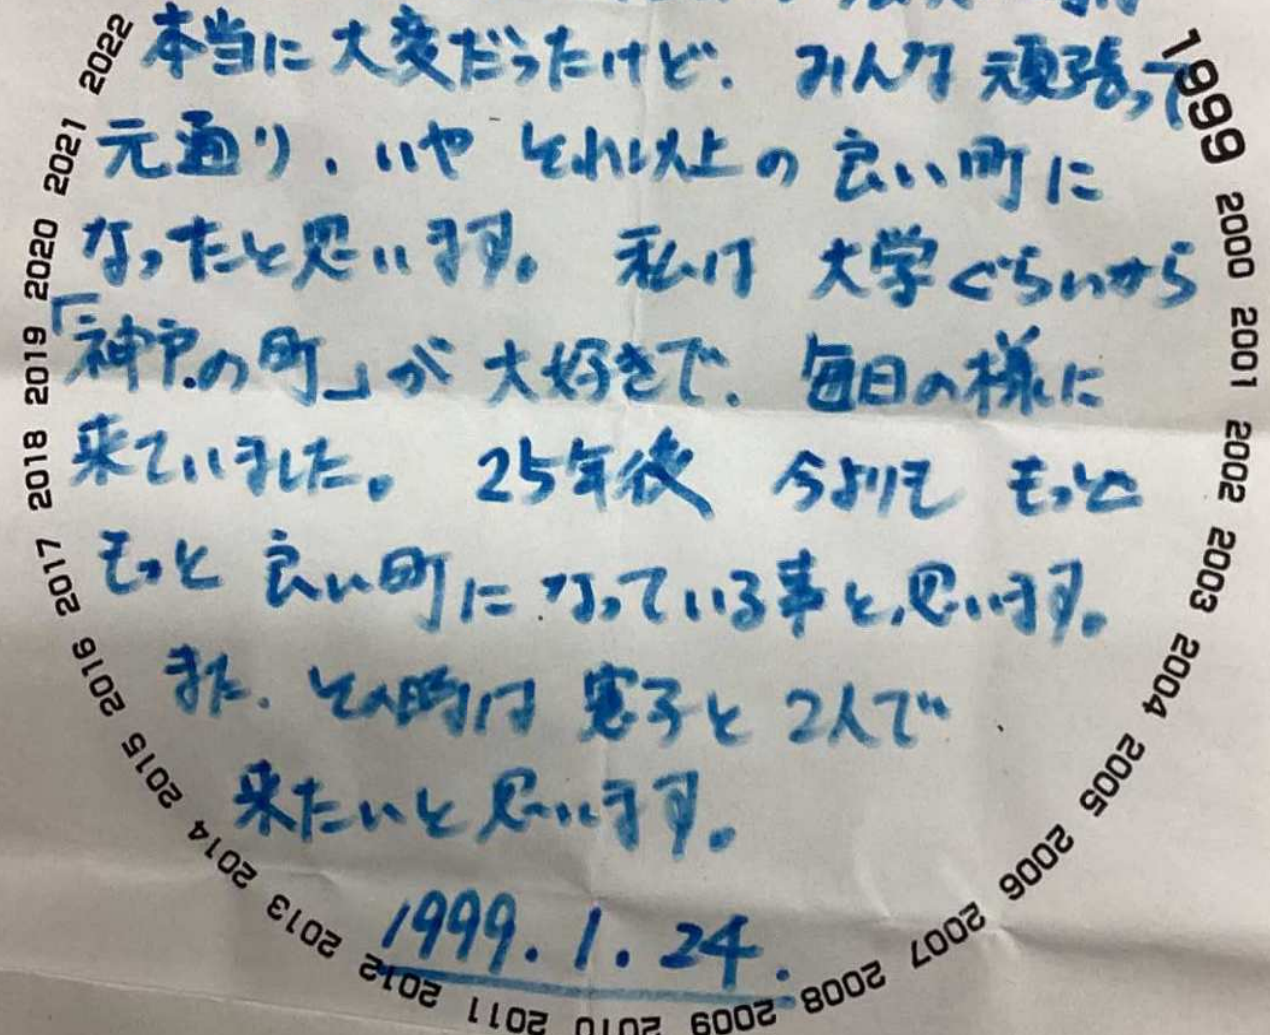 本当に大変だったけど、みんな頑張って
元通り、いやそれ以上の良い町に
なったと思います。私は大学ぐらいから
「神戸の町」が大好きで、毎日の様に
来ていました。25年後今よりももっと
もっと良い町になっている事と思います。
また、その時は憲子と2人で
来たいと思います。
1999.1.24.
1999
2000
2001
2002
2003
2004
2005
2006
2007
2008
2009
2010
2011
2012
2013
2014
2015
2016
2017
2018
2019
2020
2021
2022